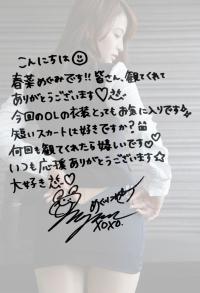 こんにちは
春菜めぐみです!! 皆さん、観てくれて
ありがとうございます♡
今回のOLの衣装とってもお気に入りです
短いスカートは好きですか?
何回も観てくれたら嬉しいです♡
いつも応援ありがとうございます☆
大好き♡
めぐみ
xoxo.